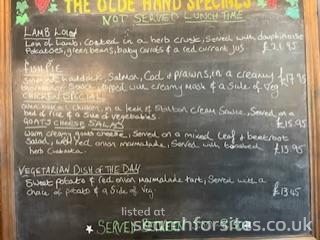 THE OLDE HAND SPECIALS
NOT SERVED LUNCH TIME
LAMB LOIN
Loin of Lamb, Coated in a herb crust, Served with dauphinoise
Potatoes, green beans, baby carrots & a red currant jus £21.95
FISH PIE
Smoked haddock, Salmon, Cod & Prawns, in a creamy £17.95
Sauce, topped with creamy Mash & a Side of Veg
CHICKEN SPECIAL
chicken, in a leek & Stilton cream Sauce, Served on a
bed of rice & a Side of vegetables.
GOATS CHEESE SALAD £15.95
Warm creamy goats cheese, Served on a mixed leaf & beetroot
Salad, with red onion marmalade, Served with toasted £13.95
herb
VEGETARIAN DISH OF THE DAY
Sweet potato & red onion Marmalade tart, Served with a
choice of potato & a Side of Veg. £13.45
listed at
searchforsites.co.uk